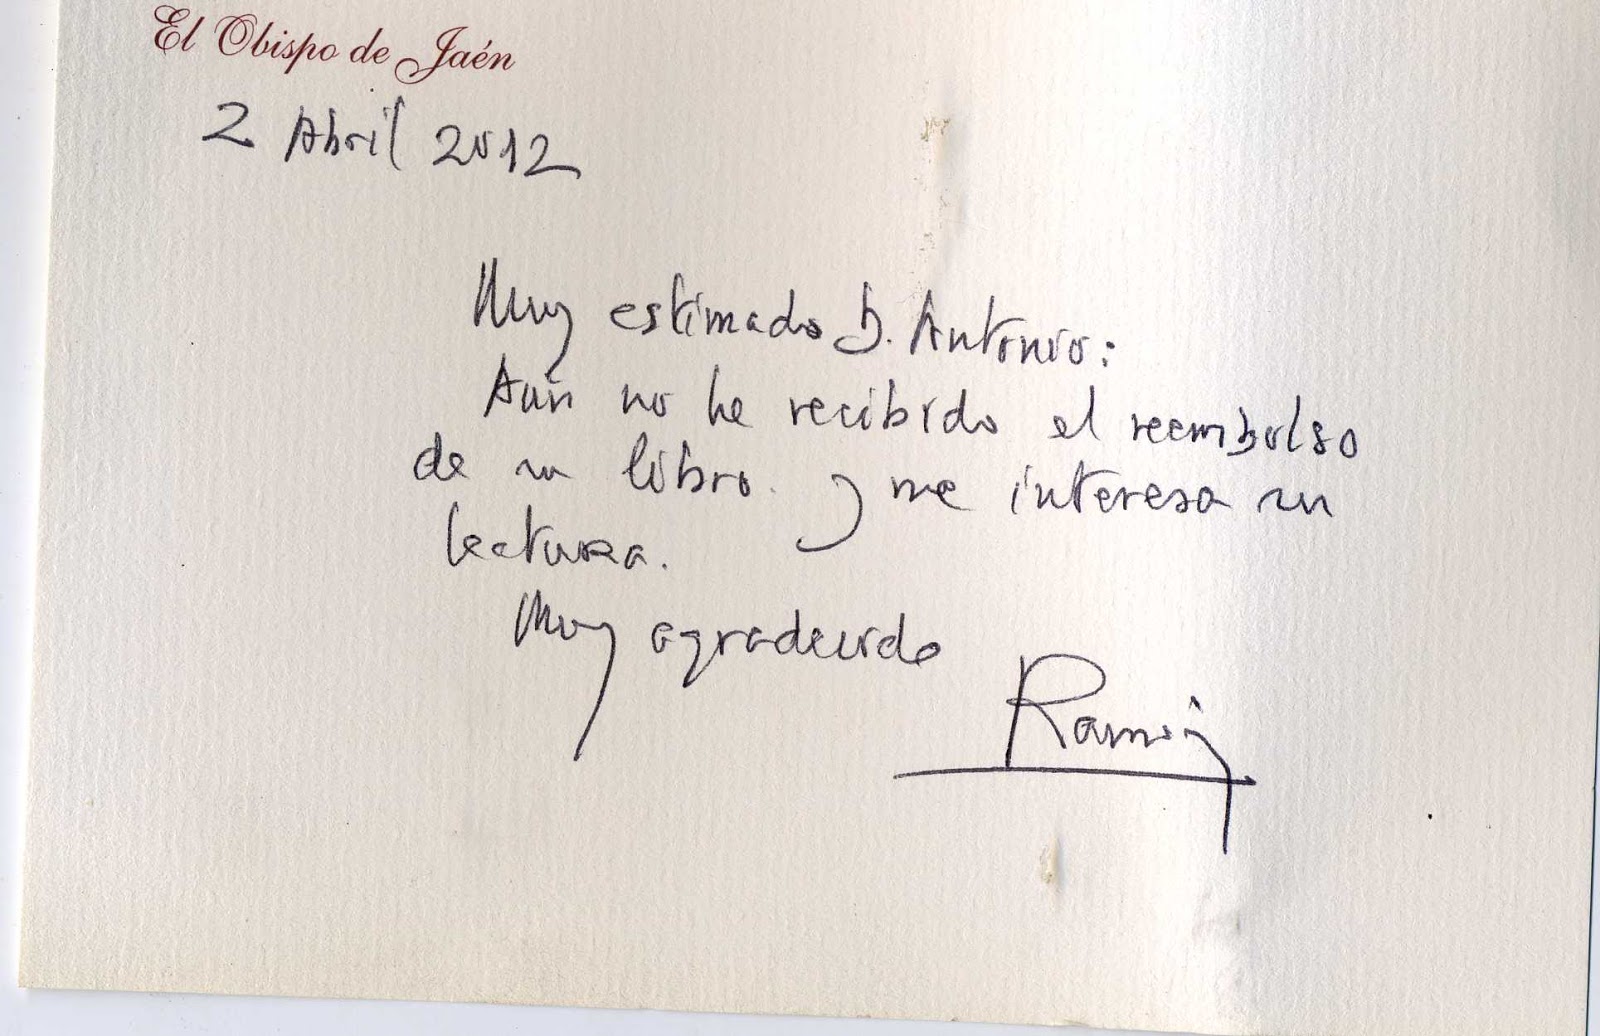 El Obispo de Jaén
2 Abril 2012
Muy estimado D. Antonio:
Aún no he recibido el reembolso
de su libro. y me interesa su
lectura.
Muy agradecido
Ramón